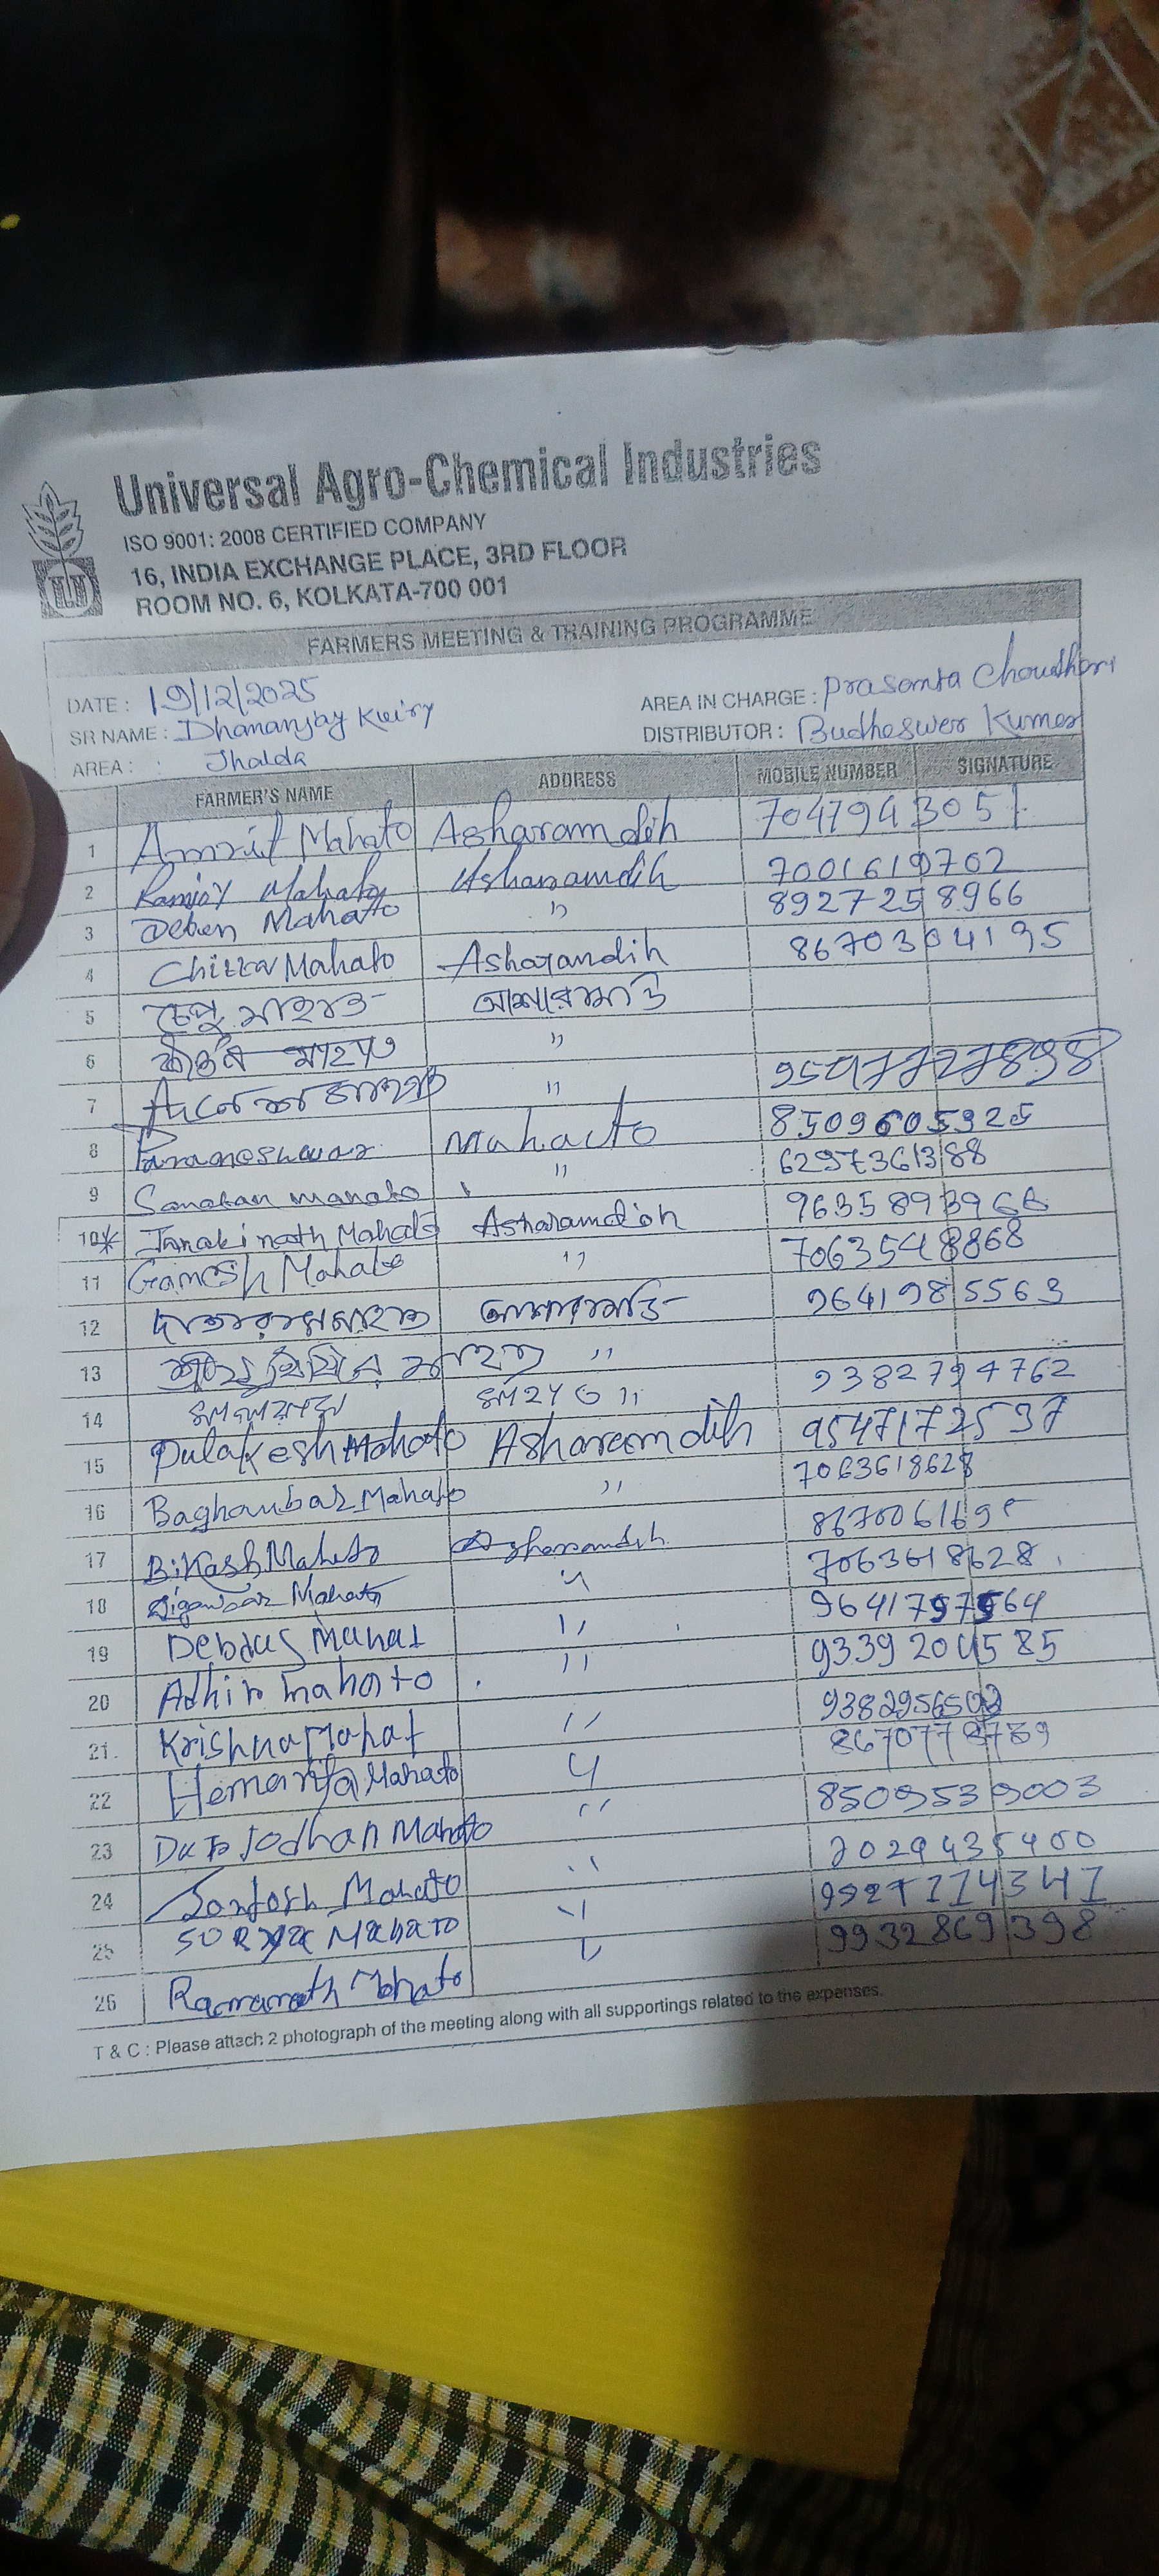 Universal Agro-Chemical Industries
ISO 9001: 2008 CERTIFIED COMPANY
16, INDIA EXCHANGE PLACE, 3RD FLOOR
ROOM NO. 6, KOLKATA-700 001
FARMERS MEETING & TRAINING PROGRAMME
DATE : 19/12/2025 AREA IN CHARGE : Prasanta Choudhari
SR NAME : Dhananjay Kuiry DISTRIBUTOR : Budheswer Kumar
AREA : Jhalda
FARMER'S NAME ADDRESS MOBILE NUMBER SIGNATURE
1 Amrit Mahato Asharamdih 7047943051
2 Ramjoy Mahato Asharamdih 7001619702
3 Deben Mahato " 8927258966
4 Chitta Mahato Asharandih 8670304195
5 মাহাত
6 কীর্তন মাহাত "
7 " 9597727898
8 Parameshwar Mahato 8509605925
9 Sanatan mahato " 6297361388
10 Janaki nath Mahato Asharamdih 9635893966
11 Ganesh Mahato " 7063548868
12 9641985563
13 মাহাত "
14 " 9382794762
15 Pulakesh Mahato Asharamdih 9547172537
16 Baghambar Mahato " 7063618628
17 Bikash Mahato Asharamdih
18 Digambar Mahato " 7063618628
19 Debdas Mahat "
20 Adhir mahato " 9339204585
21. Krishna Mahat "
22 Mahato "
23 Mahato " 8509539003
24 Santosh Mahato "
25 Mahato "
26 Ramanath Mahato 9932869398
T & C : Please attach 2 photograph of the meeting along with all supportings related to the expenses.